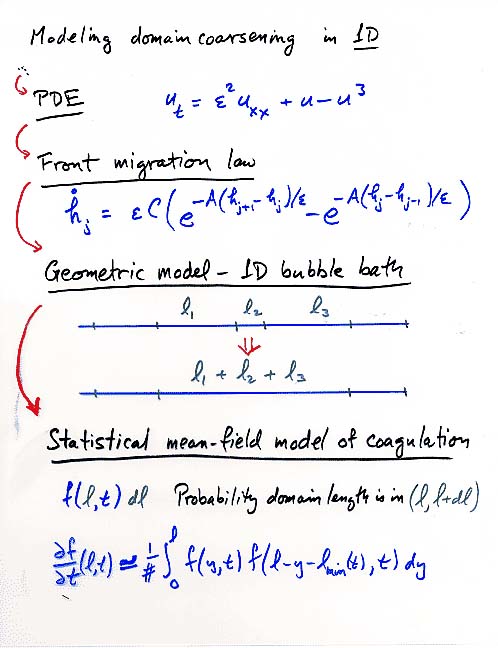 Modeling domain coarsening in 1D
PDE u_t = ε² u_xx + u − u³
Front migration law
ḣ_j = ε C ( e^{−A(h_{j+1} − h_j)/ε} − e^{−A(h_j − h_{j−1})/ε} )
Geometric model – 1D bubble bath
l₁ l₂ l₃
⇓
l₁ + l₂ + l₃
Statistical mean-field model of coagulation
f(l,t) dl Probability domain length is in (l, l+dl)
∂f/∂t (l,t) ≃ 1/# ∫₀^l f(y,t) f(l−y−l_min(t), t) dy